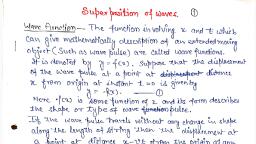 Superposition of waves. ①
Wave Function:- The function involving x and t which
can give mathematically description of an extended moving
object (such as wave pulse) are called wave functions.
It is denoted by y = f(x). Suppose that the displacement
of the wave pulse at a point at distance
x from origin at instant t = 0 is given by
y = f(x). — ①
Here f(x) is some function of x and its form describes
the shape or type of wave pulse.
If the wave pulse travels without any change in shape
along the length of string then the displacement at
a point at distance x-vt from the origin at any